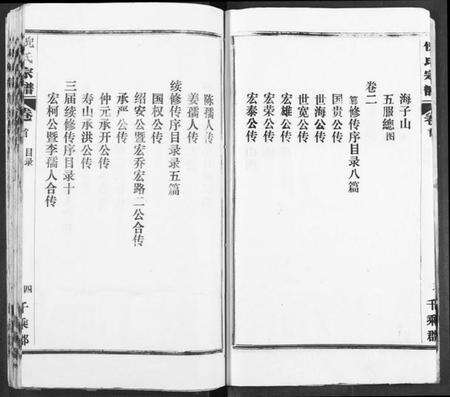 倪氏宗谱
卷首
千乘郡
海子山
五服總图
卷二
修传序目录八篇
国贵公传
世海公传
世宽公传
宏雄公传
宏荣公传
宏泰公传
陈孺人传
姜孺人传
续修传序目录五篇
国权公传
绍安公暨宏乔宏路二公合传
承严公传
仲元承开公传
寿山承洪公传
三届续修传序目录十
宏柯公暨李孺人合传
倪氏宗谱
卷首
目录
四
千乘郡